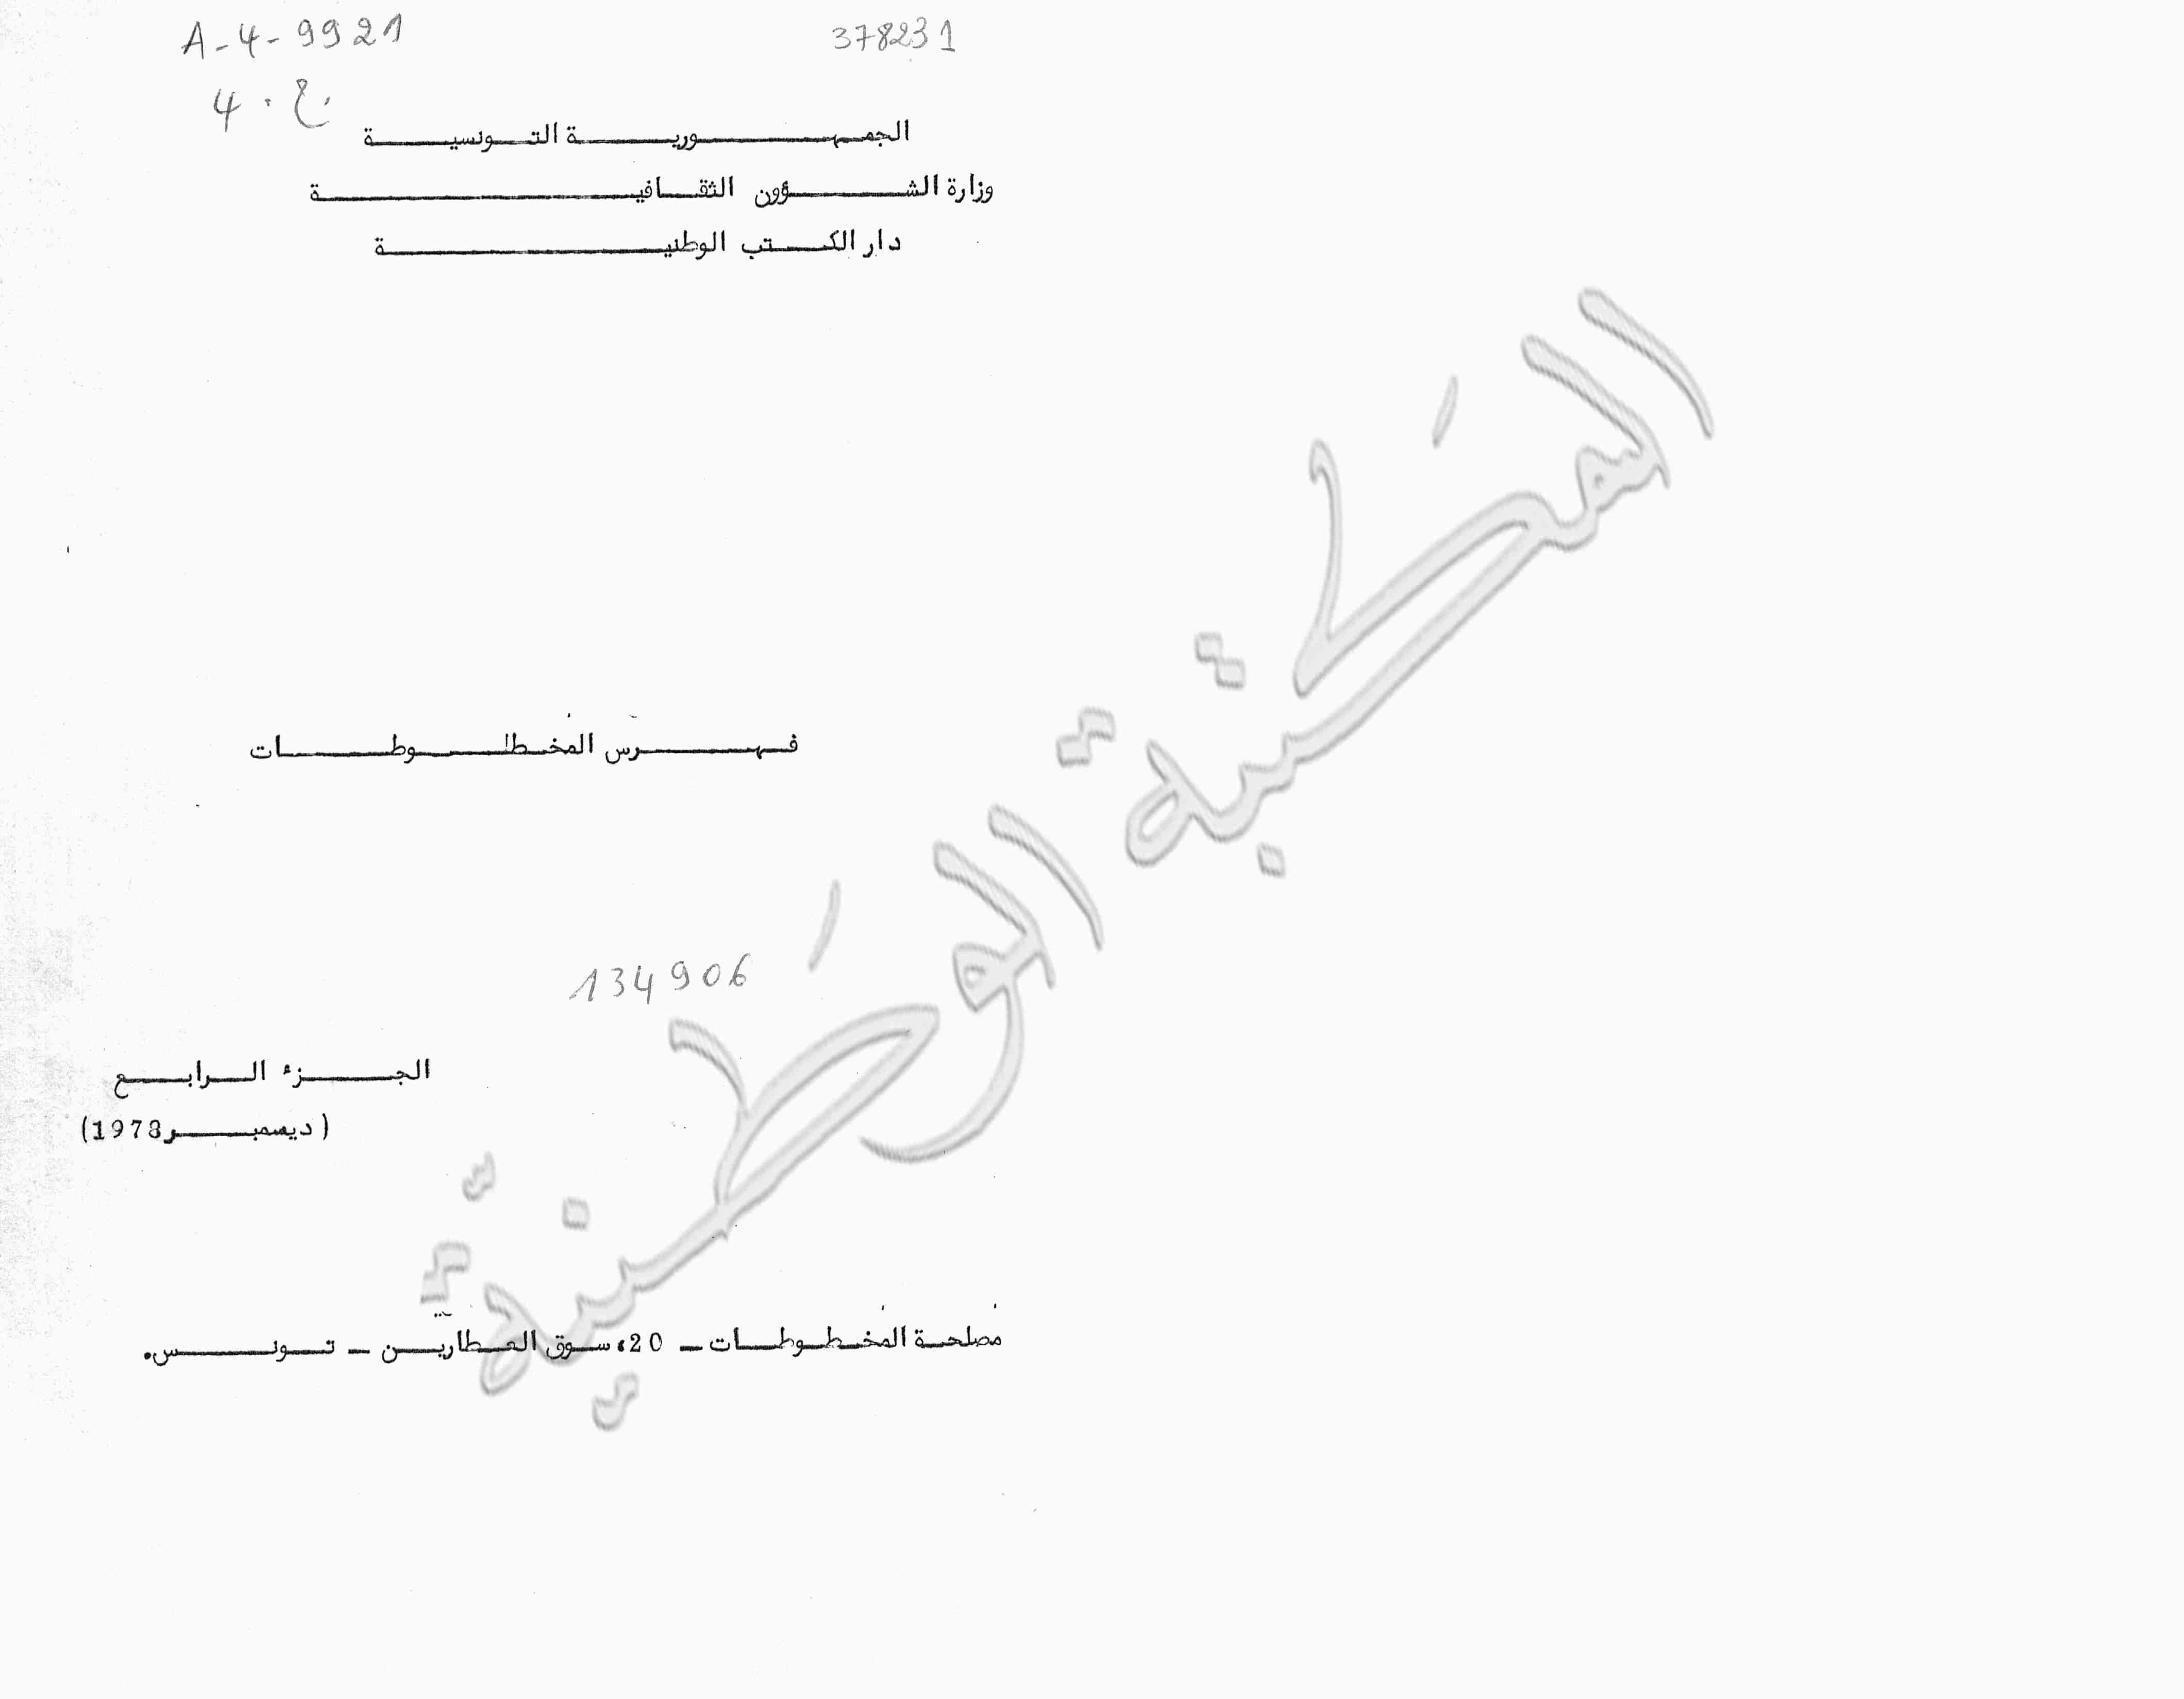 A-4-9921
378231
ج. 4
الجمهورية التونسية
وزارة الشؤون الثقافية
دار الكتب الوطنية
فهرس المخطوطات
134906
الجزء الرابع
(ديسمبر 1978)
مصلحة المخطوطات - 20، سوق العطارين - تونس.
المكتبة الوطنية